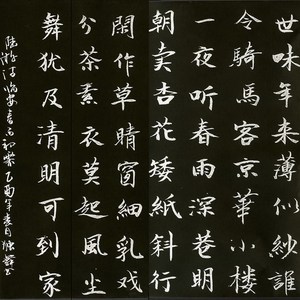 世味年来薄似紗誰
令騎馬客京華小樓
一夜听春雨深巷明
朝賣杏花矮紙斜行
閑作草晴窗細乳戲
分茶素衣莫起風塵
犹及清明可到家
陸游诗臨安春雨初霁乙酉年春月